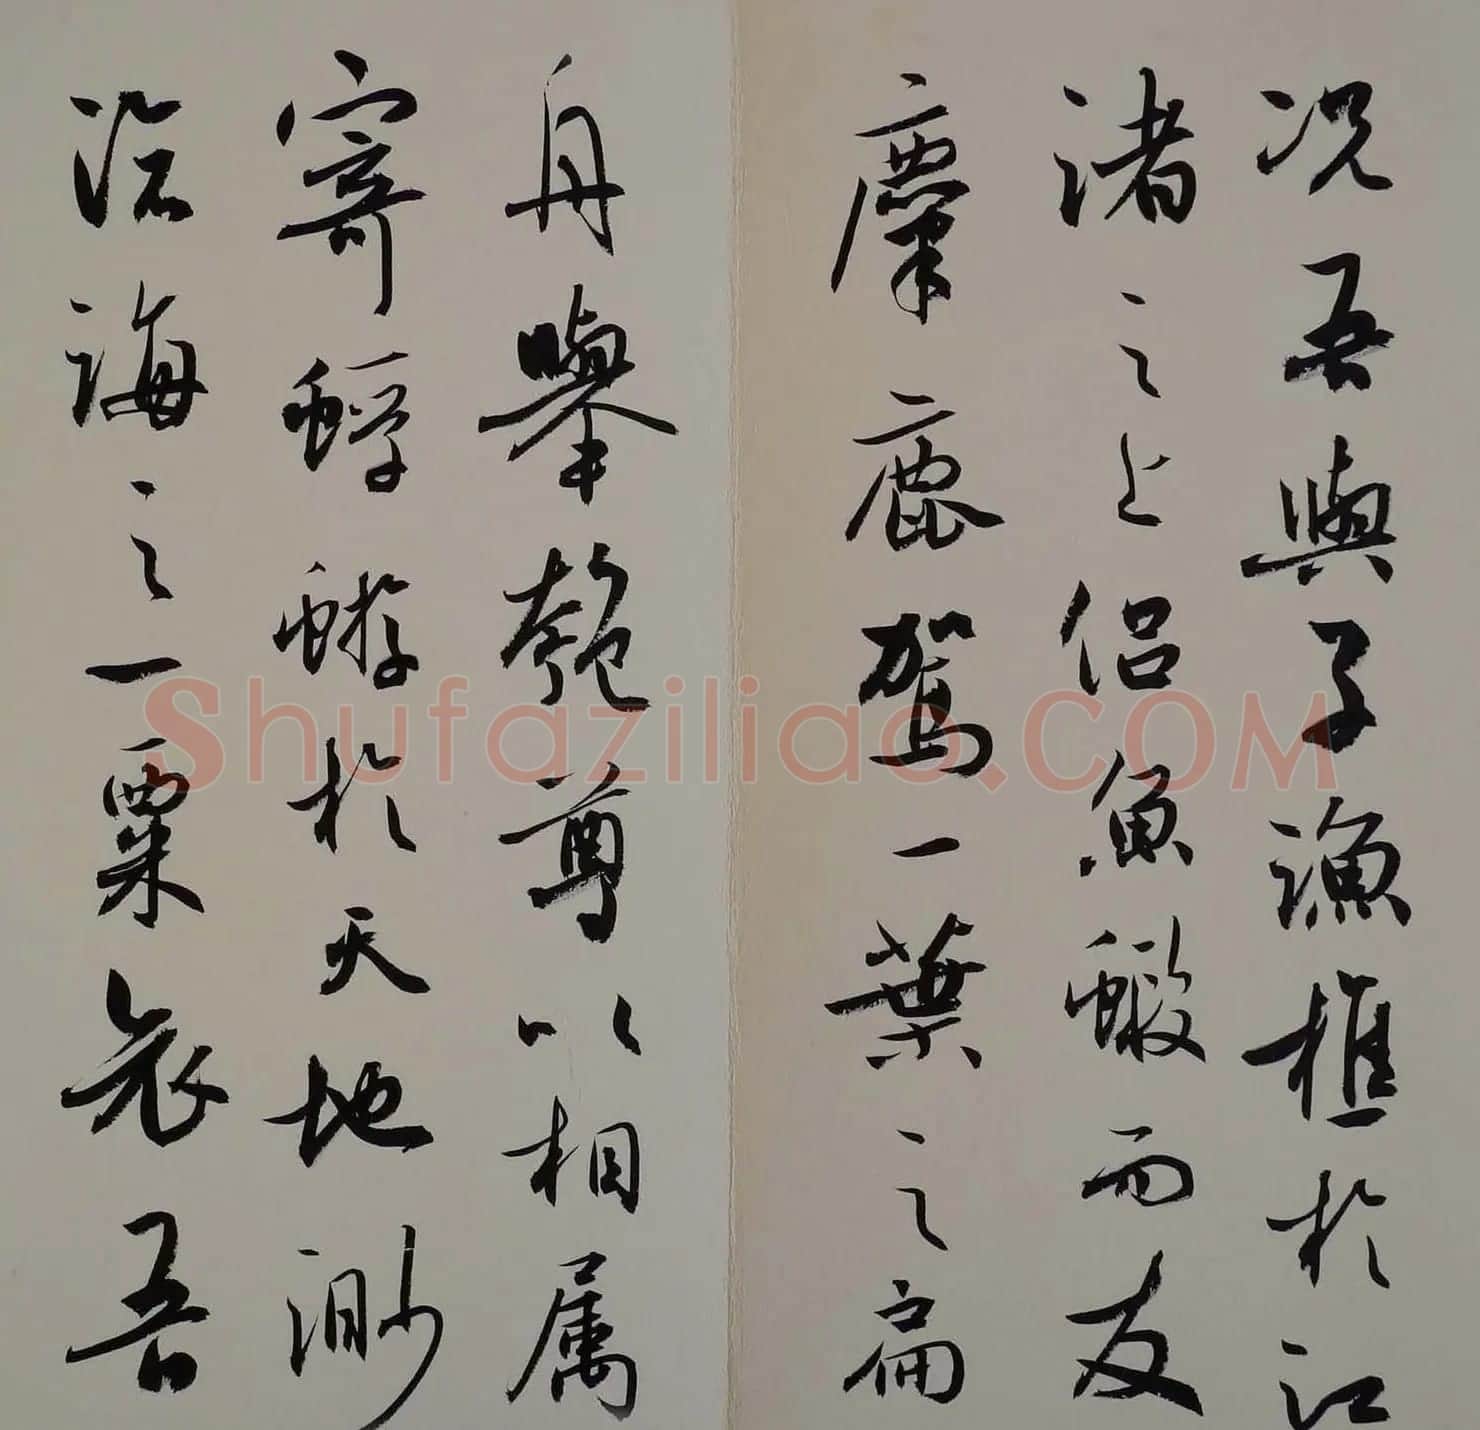 况吾與子漁樵於江
渚之上侣魚蝦而友
麋鹿駕一葉之扁
舟舉匏尊以相属
寄蜉蝣於天地渺
滄海之一粟哀吾
Shufaziliao.COM